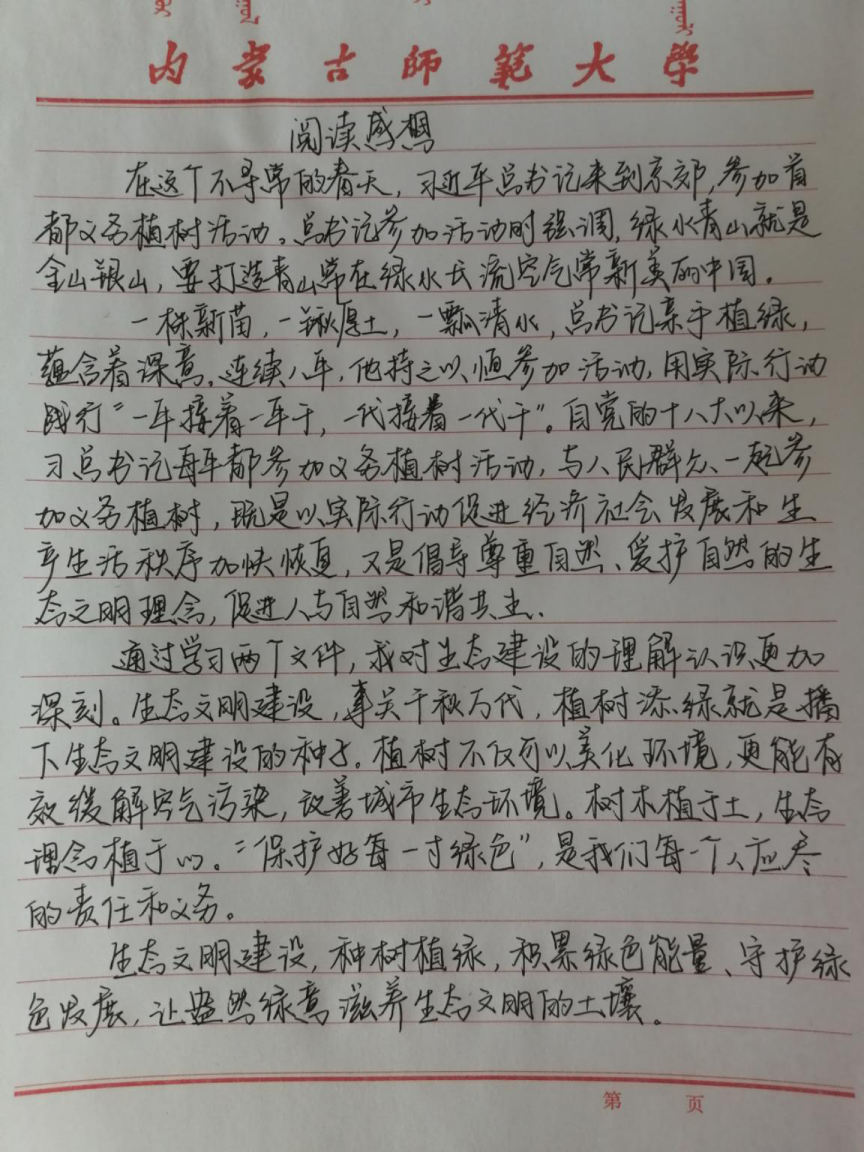 内蒙古師範大學
阅读感想
在这个不寻常的春天，习近平总书记来到京郊，参加首
都义务植树活动。总书记参加活动时强调，绿水青山就是
金山银山，要打造青山常在绿水长流空气常新美丽中国。
一株新苗，一锹厚土，一瓢清水，总书记亲手植绿，
蕴含着深意。连续八年，他持之以恒参加活动，用实际行动
践行“一年接着一年干，一代接着一代干”。自党的十八大以来，
习总书记每年都参加义务植树活动，与人民群众一起参
加义务植树，既是以实际行动促进经济社会发展和生
产生活秩序加快恢复，又是倡导尊重自然、爱护自然的生
态文明理念，促进人与自然和谐共生、
通过学习两个文件，我对生态建设的理解认识更加
深刻。生态文明建设，事关千秋万代，植树添绿就是播
下生态文明建设的种子。植树不仅可以美化环境，更能有
效缓解空气污染，改善城市生态环境。树木植于土，生态
理念植于心。“保护好每一寸绿色”，是我们每一个人应尽
的责任和义务。
生态文明建设，种树植绿，积累绿色能量、守护绿
色发展，让盎然绿意滋养生态文明的土壤。
第 页